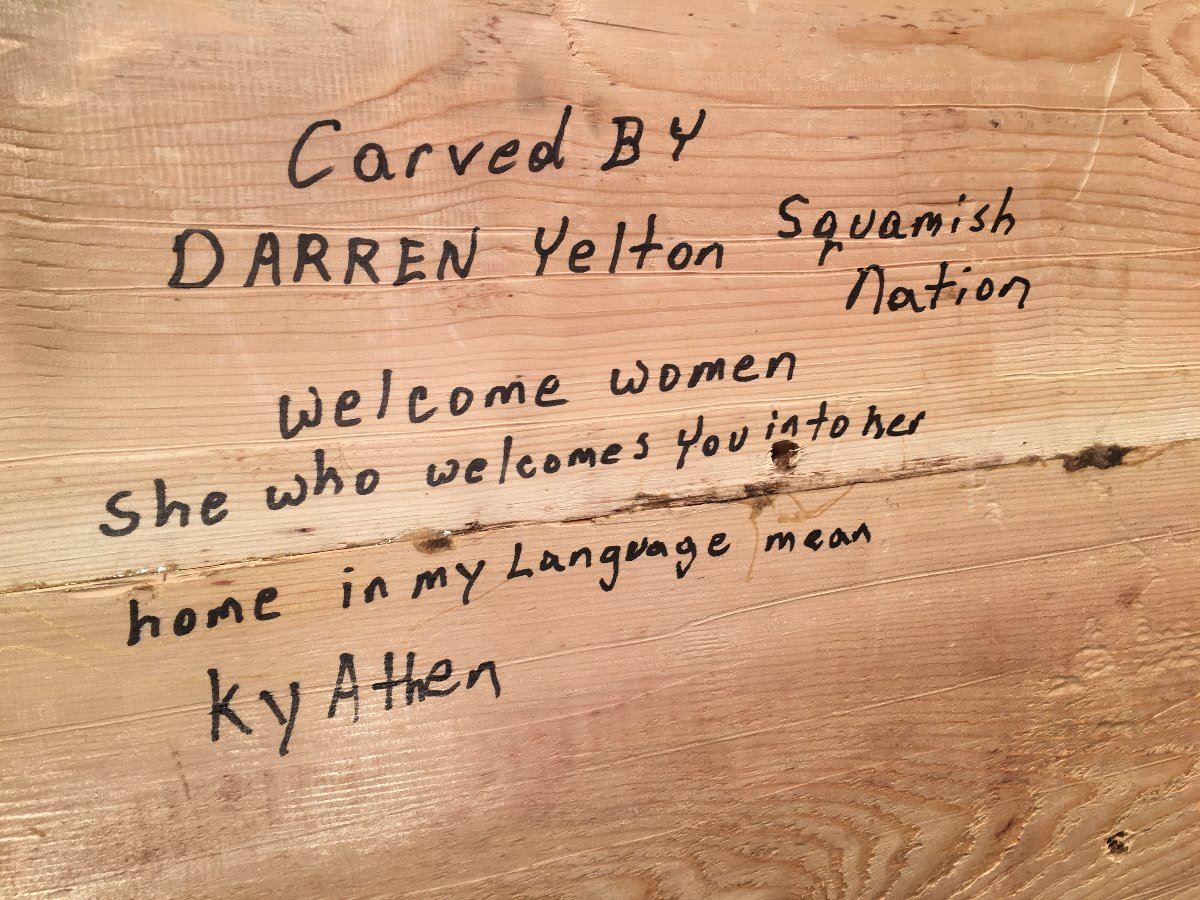 Carved BY
DARREN Yelton Squamish
Nation
Welcome women
She who welcomes you into her
home in my Language mean
Ky Athen